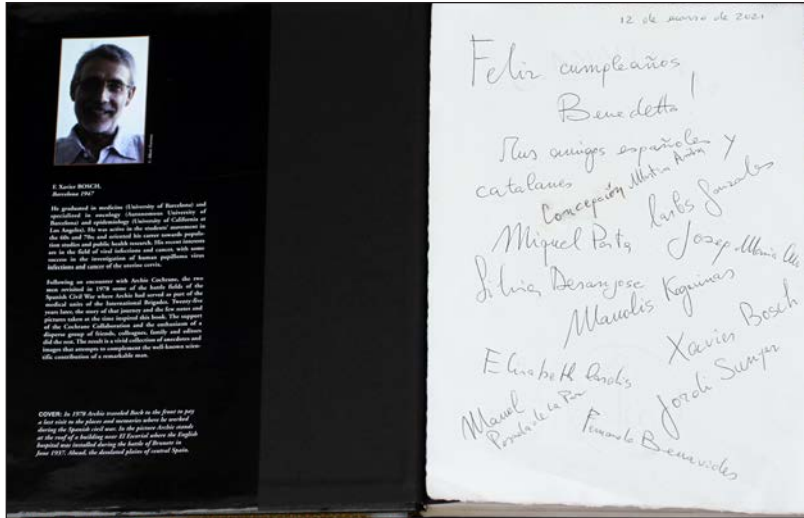 F. Xavier BOSCH,
Barcelona 1947
He graduated in medicine (University of Barcelona) and
specialized in oncology (Autonomous University of
Barcelona) and epidemiology (University of California at
Los Angeles). He was active in the students' movement in
the 60s and 70s and oriented his career towards popula-
tion studies and public health research. His recent interests
are in the field of viral infections and cancer, with some
success in the investigation of human papilloma virus
infections and cancer of the uterine cervix.
Following an encounter with Archie Cochrane, the two
men revisited in 1978 some of the battle fields of the
Spanish Civil War where Archie had served as part of the
medical units of the International Brigades. Twenty-five
years later, the story of that journey and the few notes and
pictures taken at the time inspired this book. The support
of the Cochrane Collaboration and the enthusiasm of a
disperse group of friends, colleagues, family and editors
did the rest. The result is a vivid collection of anecdotes and
images that attempts to complement the well-known scien-
tific contribution of a remarkable man.
COVER: In 1978 Archie traveled Bach to the front to pay
a last visit to the places and memories where he worked
during the Spanish civil war. In the picture Archie stands
at the roof of a building near El Escorial where the English
hospital was installed during the battle of Brunete in
June 1937. Ahead, the desolated plains of central Spain.
12 de marzo de 2021
Feliz cumpleaños
Benedetto!
Tus amigos españoles y
catalanes
Concepción Martin
Miquel Porta Carlos Gonzales
Josep Maria
Silvia Desanjose
Manolis Kogevinas
Xavier Bosch
Elisabeth Cardis
Jordi Sunyer
Manel
Posada de la Paz
Fernando Benavides